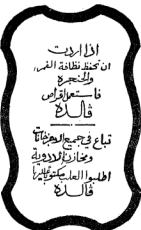 اذا اردت
ان تحفظ نظافة الفم
والحنجرة
فاستعمل اقراص
ڤالدة
تباع في جميع الاجزخانات
ومخازن الادوية
اطلبوا العلب مكتوب عليها
ڤالدة